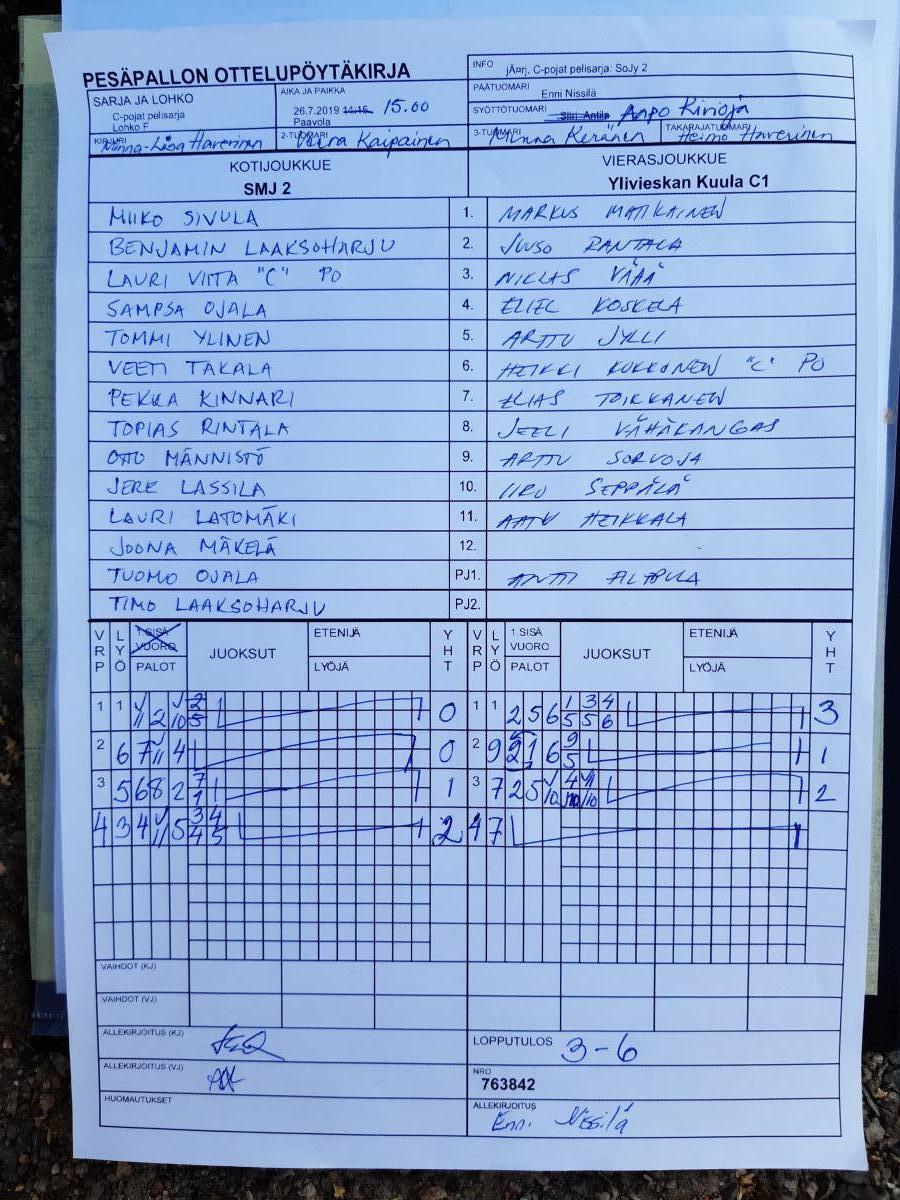 PESÄPALLON OTTELUPÖYTÄKIRJA
INFO jÃ¤rj. C-pojat pelisarja: SoJy 2
SARJA JA LOHKO
C-pojat pelisarja
Lohko F
AIKA JA PAIKKA
26.7.2019 14:15 15.00
Paavola
PÄÄTUOMARI Enni Nissilä
SYÖTTÖTUOMARI Siiri Antila Anpo Rinoja
KIRJURI Minna-Liisa Haverinen
2-TUOMARI Veera Kaipainen
3-TUOMARI Minna Keränen
TAKARAJATUOMARI Heimo Haverinen
KOTIJOUKKUE
SMJ 2
VIERASJOUKKUE
Ylivieskan Kuula C1
MIIKO SIVULA 1. MARKUS MATIKAINEN
BENJAMIN LAAKSOHARJU 2. JUUSO RANTALA
LAURI VIITA "C" PO 3. NIKLAS VÄÄÄ
SAMPSA OJALA 4. ELIEL KOSKELA
TOMMI YLINEN 5. ARTTU JYLLI
VEETI TAKALA 6. HEIKKI KUKKONEN "C" PO
PEKKA KINNARI 7. ELIAS TOIKKANEN
TOPIAS RINTALA 8. JEELI VÄHÄKANGAS
OTTO MÄNNISTÖ 9. ARTTU SORVOJA
JERE LASSILA 10. IIRO SEPPÄLÄ
LAURI LATOMÄKI 11. AATU HEIKKALA
JOONA MÄKELÄ 12.
TUOMO OJALA PJ1. ANTTI ALAPULA
TIMO LAAKSOHARJU PJ2.
VRP LYÖ 1 SISÄ VUORO PALOT JUOKSUT ETENIJÄ LYÖJÄ YHT VRP LYÖ 1 SISÄ VUORO PALOT JUOKSUT ETENIJÄ LYÖJÄ YHT
1 1 V/11 2 V/10 2/5 0 1 1 2 5 6 1/5 3/5 4/6 3
2 6 7 V/11 4 0 2 9 2 1 6 9/5 1
3 5 6 8 2 7/1 1 3 7 2 5 V/10 2
4 3 4 V/11 5 3/4 4/5 2 4 7
VAIHDOT (KJ)
VAIHDOT (VJ)
ALLEKIRJOITUS (KJ)
LOPPUTULOS 3-6
ALLEKIRJOITUS (VJ)
NRO
763842
HUOMAUTUKSET
ALLEKIRJOITUS
Enni Nissilä